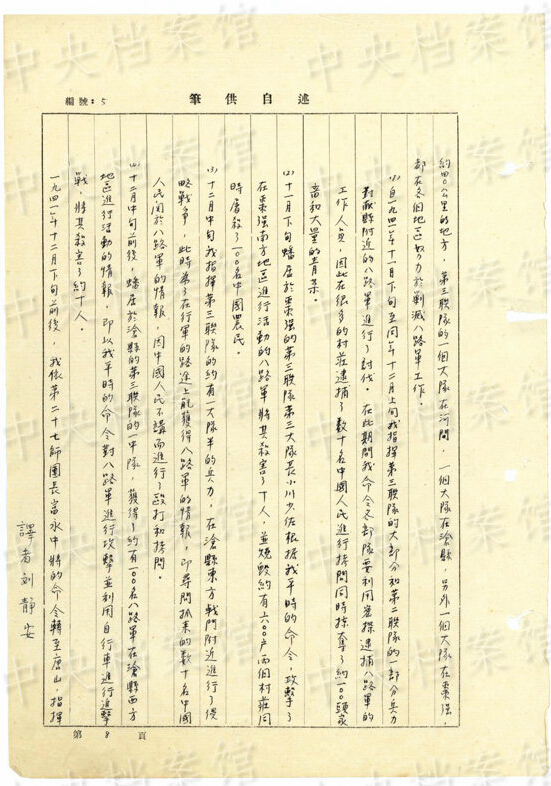 編號：5
述自供筆
約四〇公里的地方，第三联隊的一個大隊在河間，一個大隊在滄縣，另外一個大隊在棗強，
都在各個地區努力於剿滅八路軍工作。
(1)自一九四一年十一月下旬至同年十二月上旬我指揮第三联隊的大部分和第二联隊的一部分兵力
對献縣附近的八路軍進行了討伐。在此期間我命令各部隊要利用密探逮捕八路軍的
工作人員，因此在很多的村莊逮捕了數十名中國人民進行拷問同時掠奪了約一〇〇頭家
畜和大量的青菜。
(2)十一月下旬蟠居於棗強的第三联隊第三大隊長小川少佐根据我平時的命令，攻擊了
在棗強南方地區進行活動的八路軍將其殺害了十人，並燒毀約有六〇〇户两個村莊同
時屠殺了一〇〇名中國農民。
(3)十二月中旬我指揮第三联隊的約有一大隊半的兵力，在滄縣東方戰鬥附近進行了侵
略戰争，此時為了在行軍的路途上能獲得八路軍的情報，即尋問抓来的數十名中國
人民関於八路軍的情報，因中國人民不講而進行了毆打和拷問。
(4)十二月中旬前後，蟠居於滄縣的第三联隊的一中隊，獲得了約有一〇〇名八路軍在滄縣西方
地區進行活動的情報，即以我平時的命令對八路軍進行攻擊並利用自行車進行追擊
戰，將其殺害了約十人。
一九四一年十二月下旬前後，我依第二十七師團長富永中將的命令轉至唐山，指揮
譯者刘静安
第 8 頁
中央档案馆